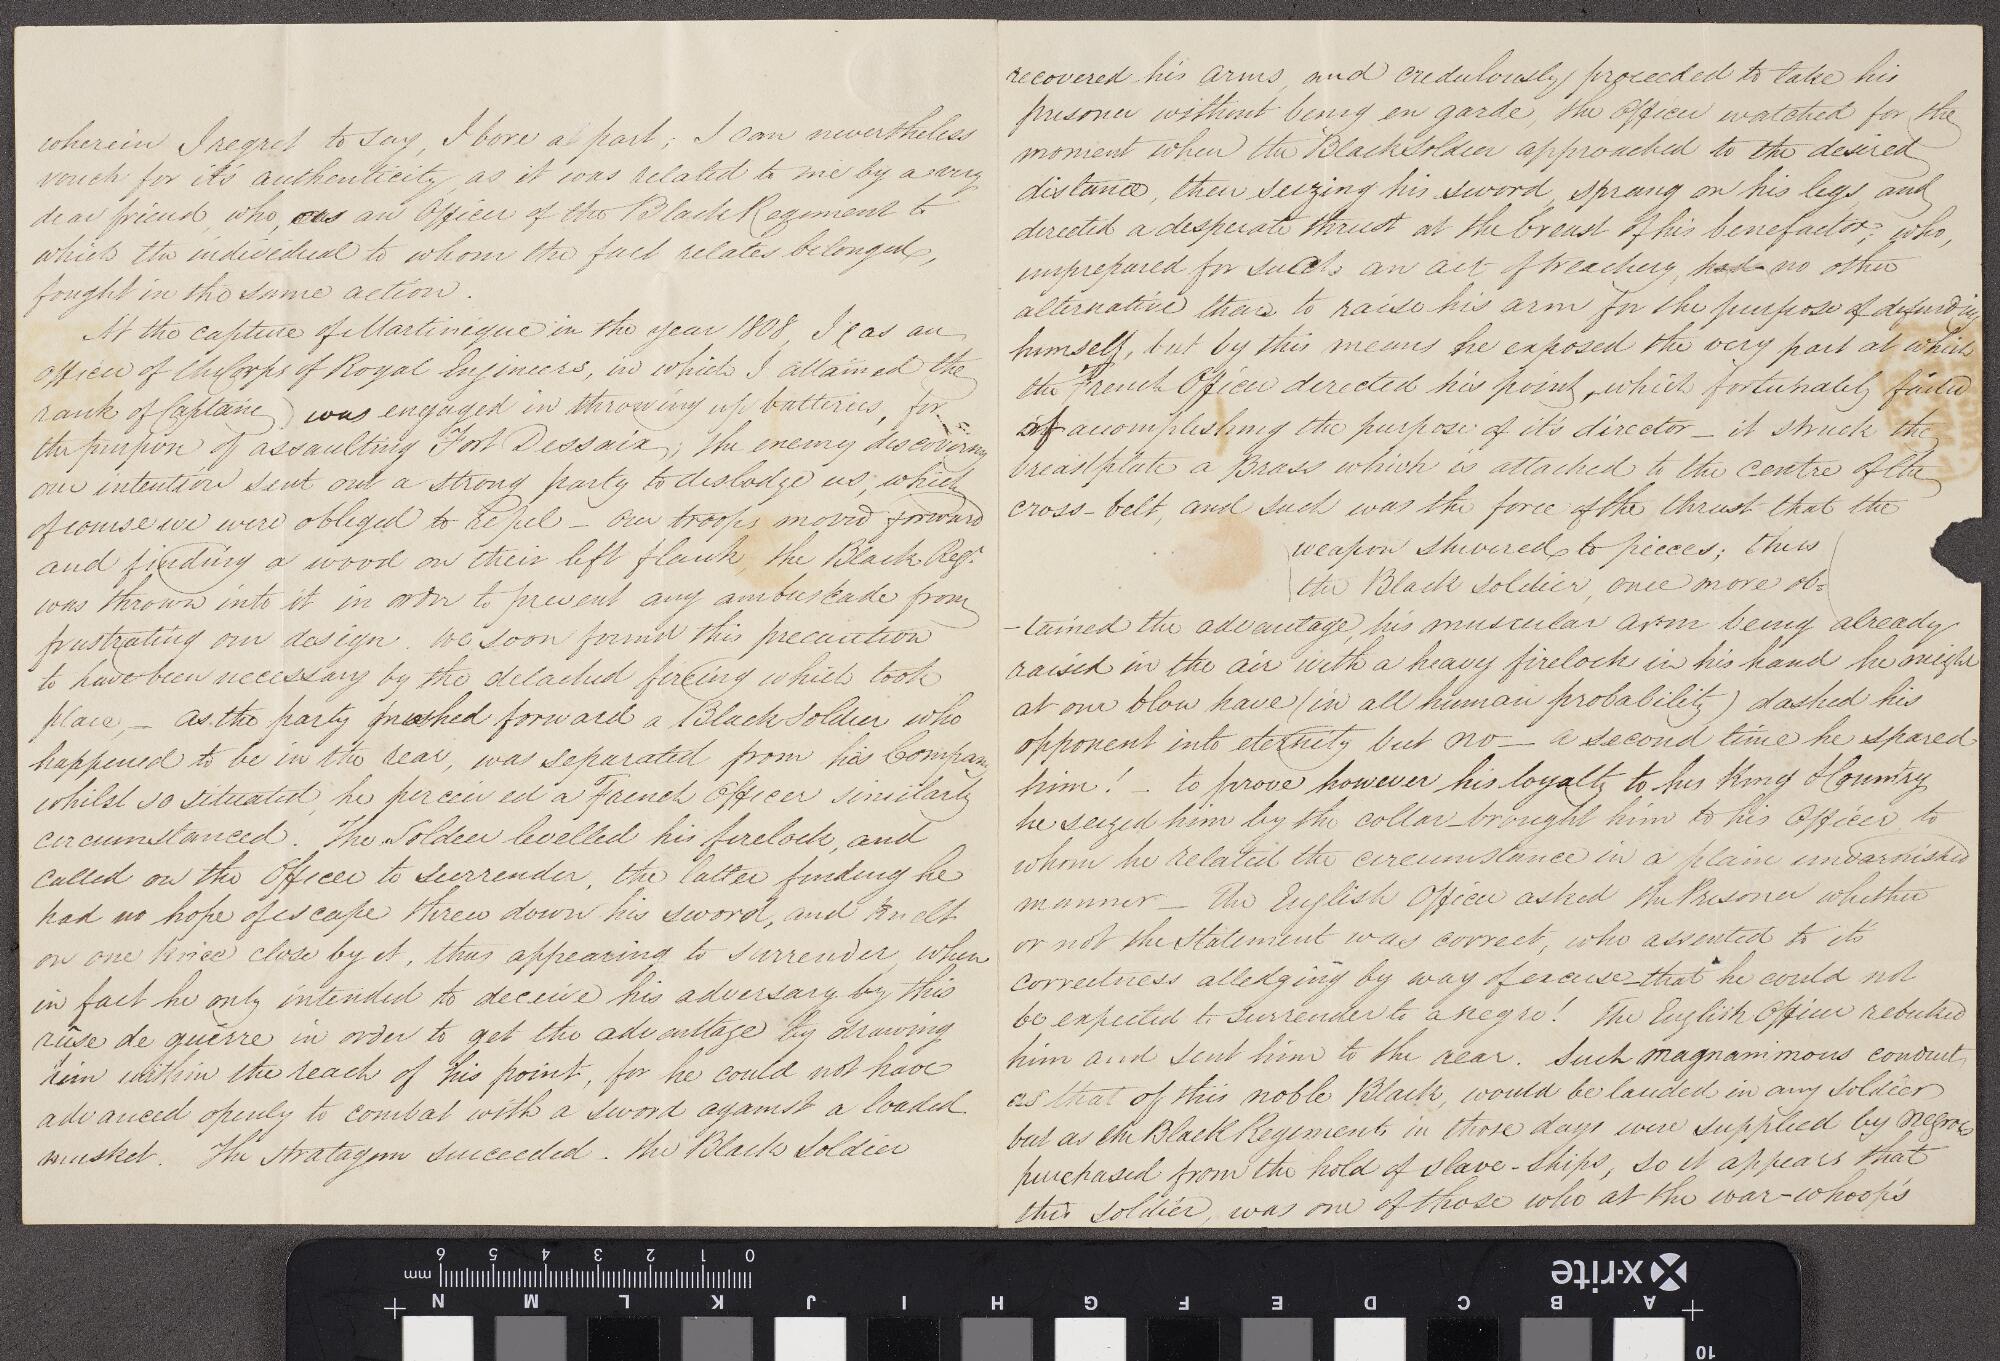 wherein I regret to say, I bore a part; I can nevertheless
vouch for it's authenticity, as it was related to me by a very
dear friend, who, as an Officer of the Black Regiment to
which the individual to whom the fact relates belonged,
fought in the same action.
At the capture of Martinique in the year 1808, I (as an
officer of the Corps of Royal Engineers, in which I attained the
rank of Captain) was engaged in throwing up batteries, for
the purpose of assaulting Fort Dessaix, the enemy discovering
our intention sent out a strong party to dislodge us, which
of course we were obliged to repel - our troops moved forward
and finding a wood on their left flank, the Black Regt.
was thrown into it in order to prevent any ambuscade from
frustrating our design. We soon found this precaution
to have been necessary by the detached fireing which took
place, - as the party pushed forward a Black Soldier who
happened to be in the rear, was separated from his Company
whilst so situated, he perceived a French Officer similarly
circumstanced. The Soldier levelled his firelock, and
called on the Officer to surrender, the latter finding he
had no hope of escape threw down his sword, and knelt
on one knee close by it, thus appearing to surrender, when
in fact he only intended to deceive his adversary by this
rûse de guèrre in order to get the advantage by drawing
him within the reach of his point, for he could not have
advanced openly to combat with a sword against a loaded
musket. The stratagem succeeded. the Black Soldier
recovered his arms, and credulously proceeded to take his
prisoner without being en garde, the Officer watched for the
moment when the Black Soldier approached to the desired
distance, then seizing his sword, sprang on his legs and
directed a desperate thrust at the breast of his benefactor, who,
unprepared for such an act of treachery, had no other
alternative than to raise his arm for the purpose of defending
himself, but by this means he exposed the very part at which
the French Officer directed his point, which fortunately failed
of accomplishing the purpose of it's director - it struck the
breastplate a Brass which is attached to the centre of the
cross-belt, and such was the force of the thrust that the
weapon shivered to pieces; thus
the Black soldier, once more ob=
-tained the advantage, his muscular arm being already
raised in the air with a heavy firelock in his hand he might
at one blow have (in all human probability) dashed his
opponent into eternity but no - a second time he spared
him! - to prove however his loyalty to his King & Country
he seized him by the collar - brought him to his Officer to
whom he related the circumstance in a plain unvarnished
manner - The English Officer asked the Prisoner whether
or not the statement was correct, who assented to it's
correctness alledging by way of excuse - that he could not
be expected to surrender to a negro! The English Officer rebuked
him and sent him to the rear. Such magnanimous conduct,
as that of this noble Black, would be lauded in any soldier
but as the Black Regiments in those days were supplied by Negroes
purchased from the hold of slave-ships, so it appears that
this soldier, was one of those who at the war-whoop's
mm 6 5 4 3 2 1 0
x-rite
N M L K J I H G F E D C B A
10